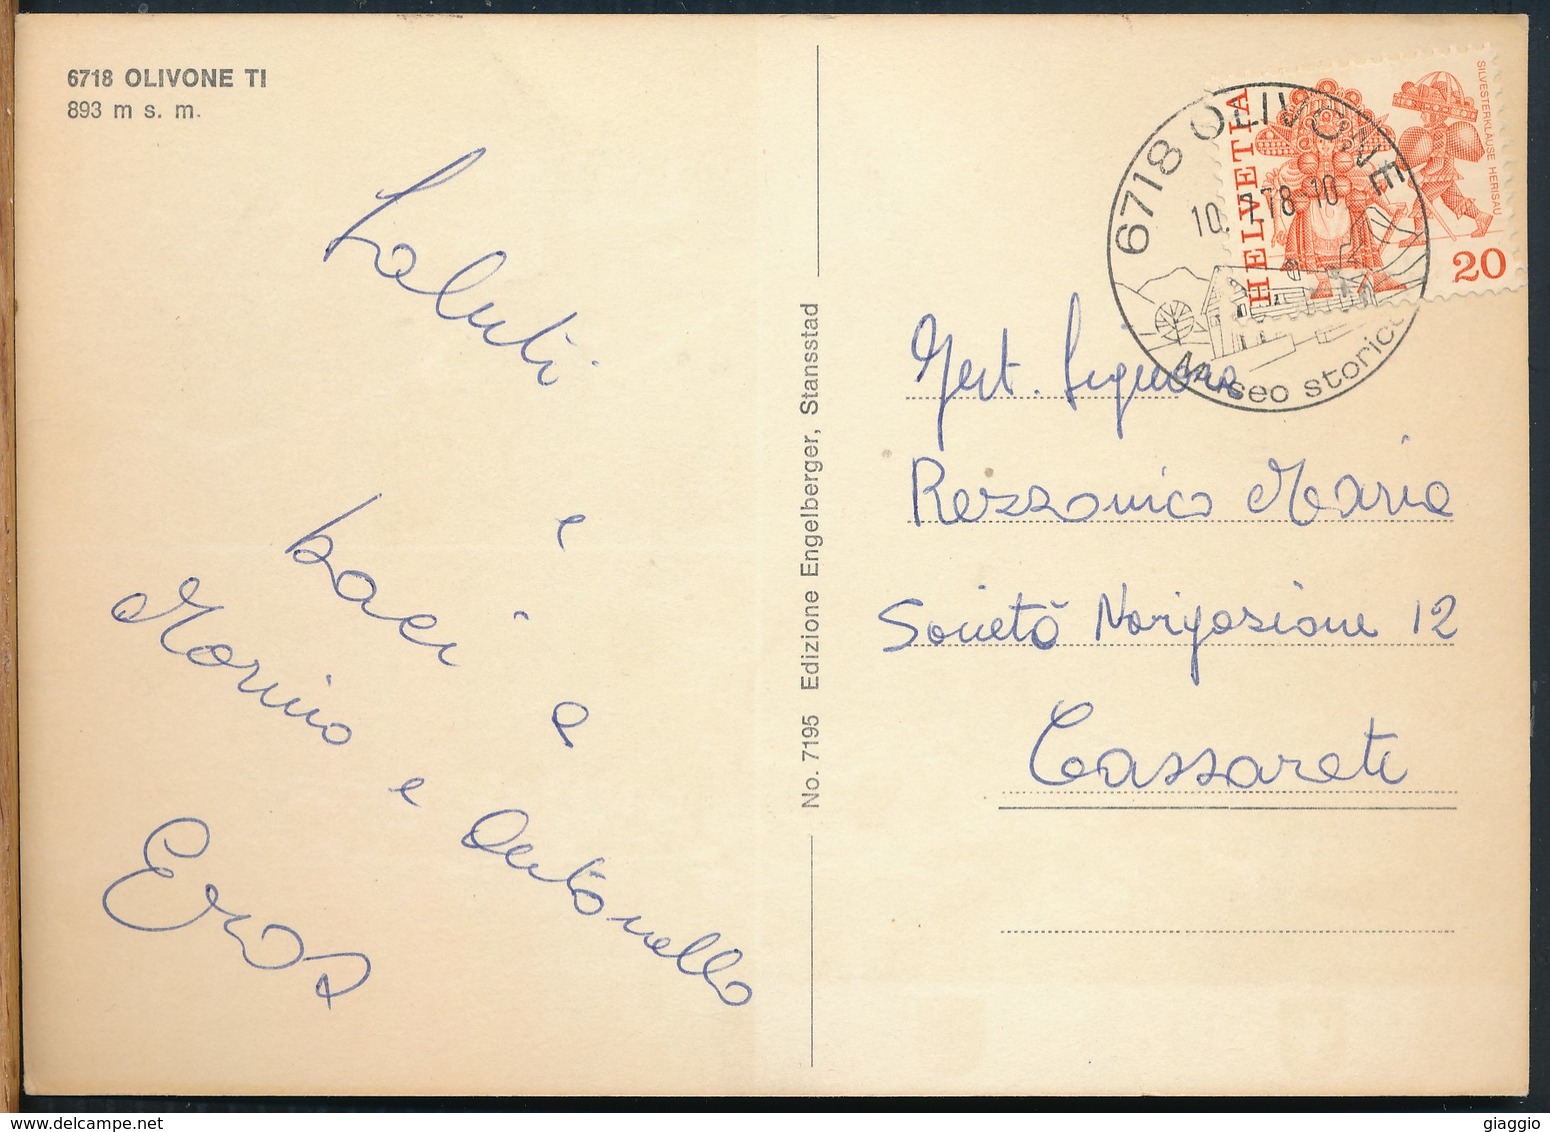 6718 OLIVONE TI
893 m s. m.
Saluti
e
baci a
Marino e Antonello
Eros
No. 7195 Edizione Engelberger, Stansstad
6718 OLIVONE
10. 7.78-10
Museo storico
HELVETIA
SILVESTERKLAUSE HERISAU
20
Gent. Signora
Rezzonico Maria
Società Navigazione 12
Cassarate
giaggio